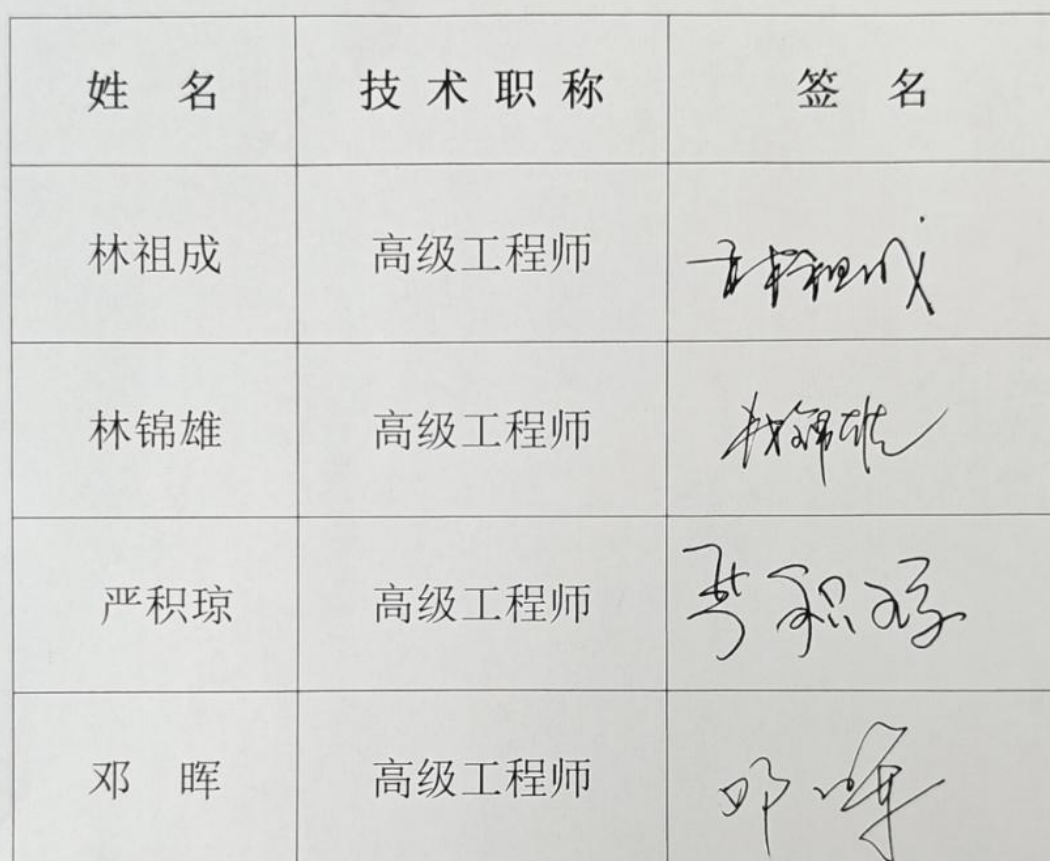 姓 名 技 术 职 称 签 名
林祖成 高级工程师 林祖成
林锦雄 高级工程师 林锦雄
严积琼 高级工程师 严积琼
邓 晖 高级工程师 邓晖